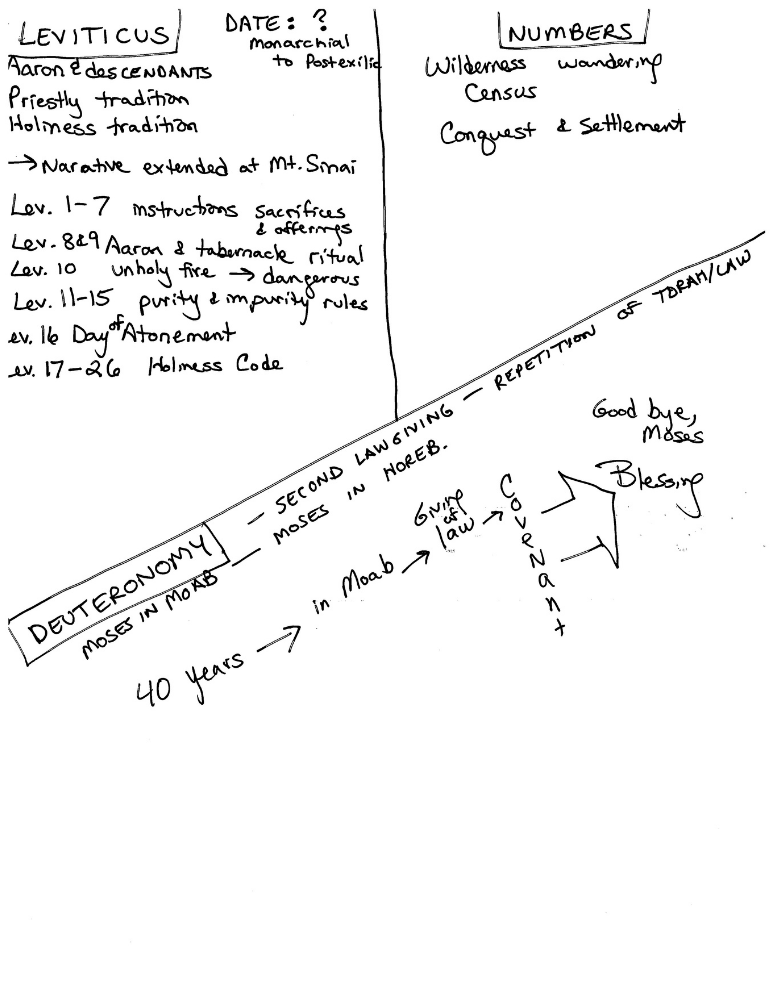 LEVITICUS
DATE: ?
Monarchial
to Postexilic
Aaron & desCENDANTS
Priestly tradition
Holiness tradition
→ Narative extended at Mt. Sinai
Lev. 1-7 instructions sacrifices
& offerings
Lev. 8&9 Aaron & tabernacle ritual
Lev. 10 unholy fire → dangerous
Lev. 11-15 purity & impurity rules
ev. 16 Day of Atonement
ev. 17-26 Holiness Code
NUMBERS
Wilderness wandering
Census
Conquest & Settlement
DEUTERONOMY — SECOND LAWGIVING — REPETITION OF TORAH/LAW
MOSES IN MOAB — MOSES IN HOREB.
40 years → in Moab → Giving
of
law → CoveNant
Good bye,
Moses
Blessing